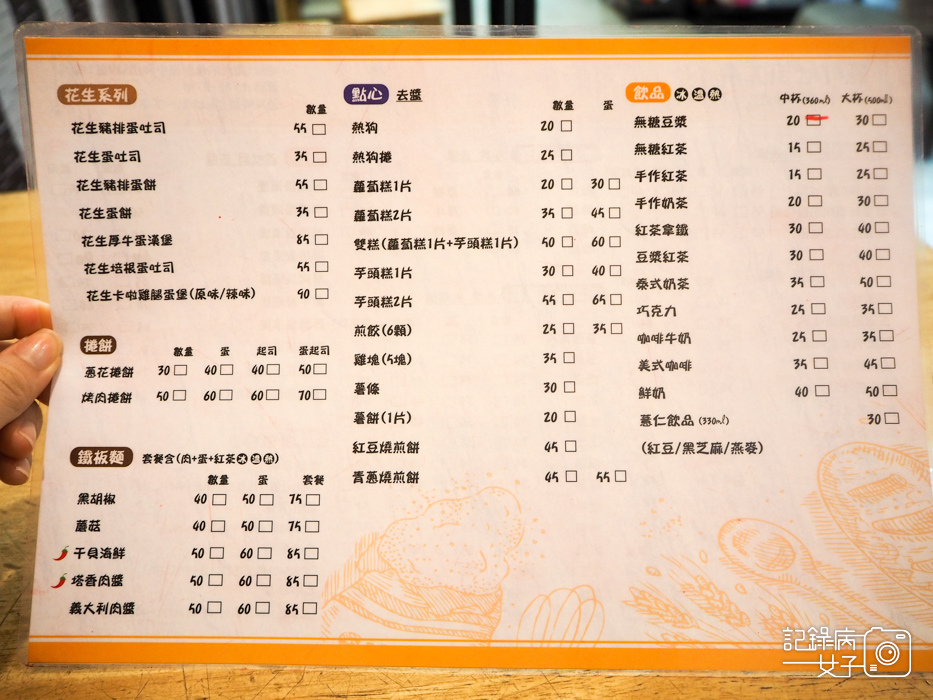 花生系列
數量
花生豬排蛋吐司 55
花生蛋吐司 35
花生豬排蛋餅 55
花生蛋餅 35
花生厚牛蛋漢堡 85
花生培根蛋吐司 55
花生卡啦雞腿蛋堡(原味/辣味) 90
捲餅
數量 蛋 起司 蛋起司
蔥花捲餅 30 40 40 50
烤肉捲餅 50 60 60 70
鐵板麵 套餐含(肉+蛋+紅茶冰溫熱)
數量 蛋 套餐
黑胡椒 40 50 75
蘑菇 40 50 75
干貝海鮮 50 60 85
塔香肉醬 50 60 85
義大利肉醬 50 60 85
點心 去醬
數量 蛋
熱狗 20
熱狗捲 25
蘿蔔糕1片 20 30
蘿蔔糕2片 35 45
雙糕(蘿蔔糕1片+芋頭糕1片) 50 60
芋頭糕1片 30 40
芋頭糕2片 55 65
煎餃(6顆) 25 35
雞塊(5塊) 35
薯條 30
薯餅(1片) 20
紅豆燒煎餅 45
青蔥燒煎餅 45 55
飲品 冰 溫 熱
中杯(360ml) 大杯(500ml)
無糖豆漿 20 30
無糖紅茶 15 25
手作紅茶 15 25
手作奶茶 20 30
紅茶拿鐵 30 40
豆漿紅茶 30 40
泰式奶茶 35 50
巧克力 25 35
咖啡牛奶 25 35
美式咖啡 35 45
鮮奶 40 50
薏仁飲品(330ml) 30
(紅豆/黑芝麻/燕麥)
記錄病
女子